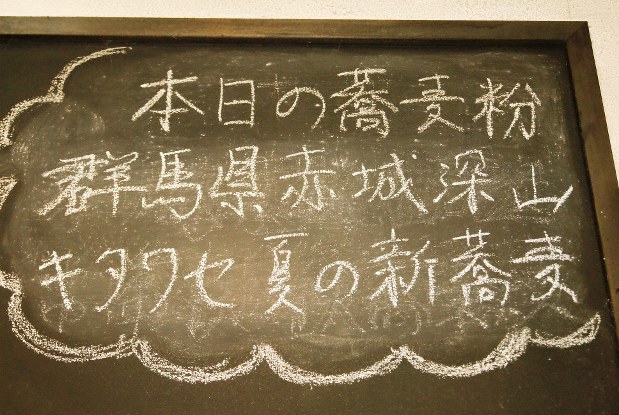 本日の蕎麦粉
群馬県赤城深山
キタワセ夏の新蕎麦